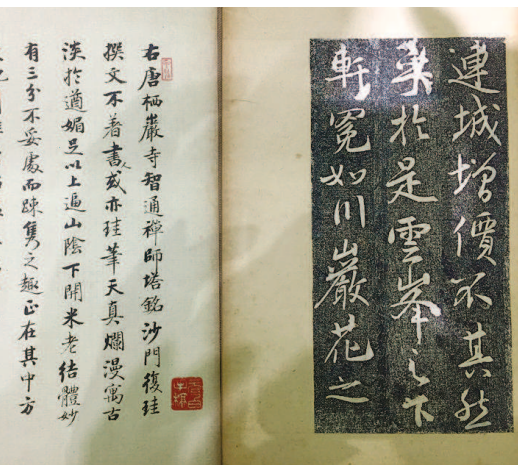 連城增價不其然
矣於是雲峯之下
軒冕如川巖花之
右唐栖巖寺智通禪師塔銘沙門復珪
撰文不著書人或亦珪筆天真爛漫寓古
淡於遒媚足以上追山陰下開米老結體妙
有三分不妥處而踈雋之趣正在其中方